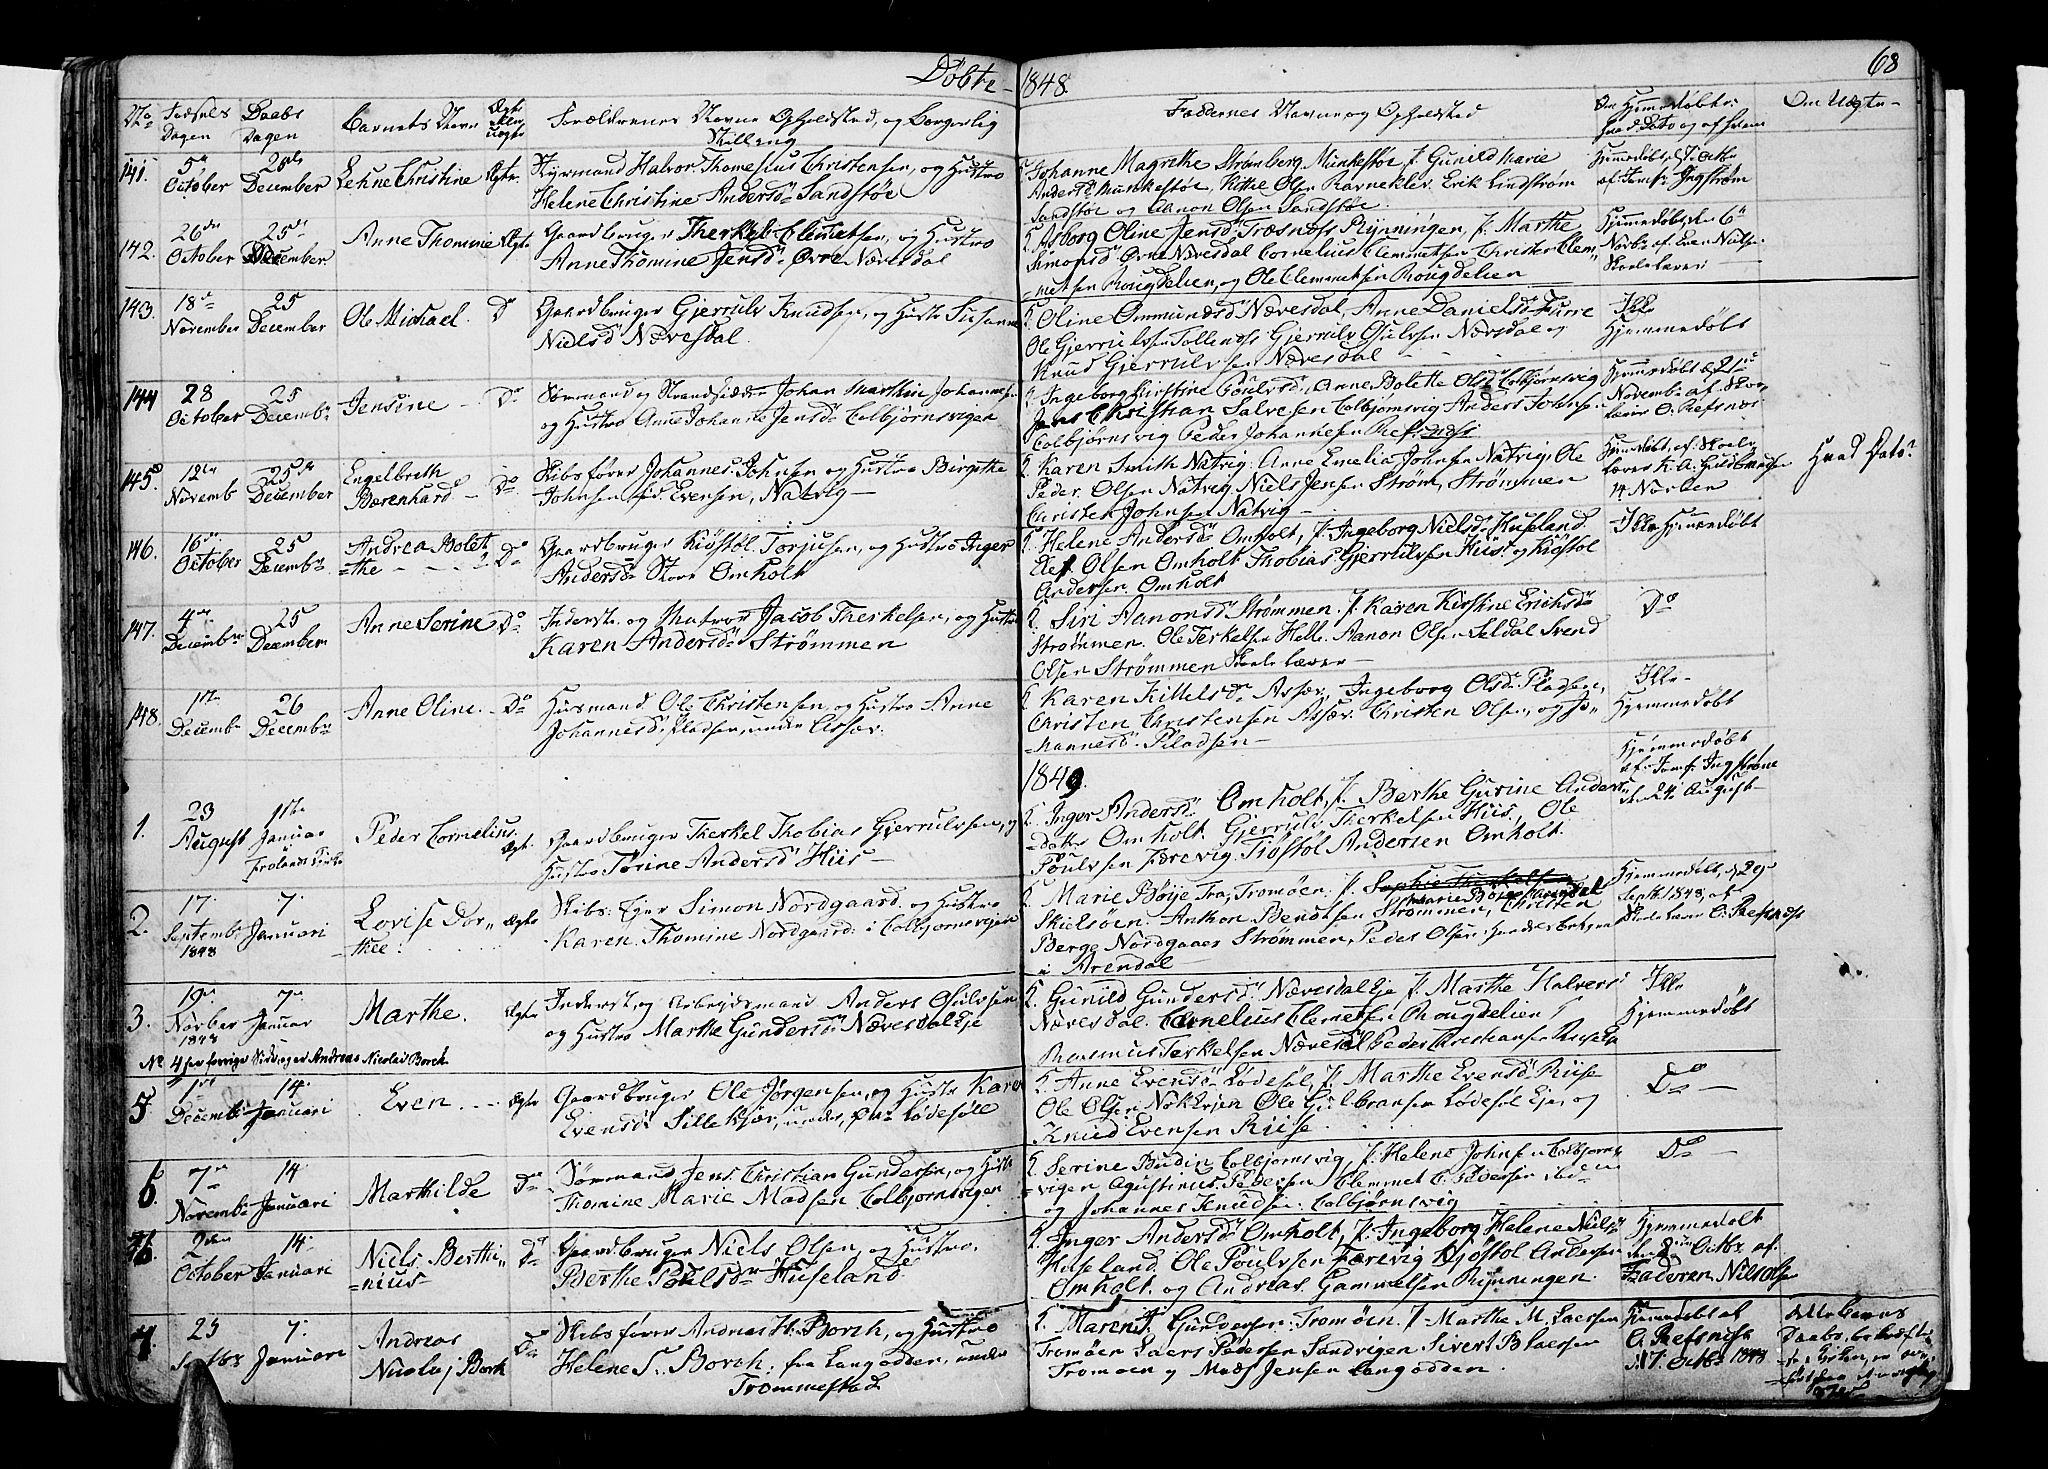 Døbte 1848.
68
No Fødsels Daabs Barnets Navn Ægte eller uægte Forældrenes Navne Opholdsted, og Borgerlig
Dagen Dagen Stilling
Faddernes Navne og Opholdsted
Om Hjemmedøbt,
Om Uægte
141. 5te October 26de December Lehne Christine Ægte. Styrmand Halvor Thomesius Christensen, og Hustro
Helene Christine Andersd Sandstøe
Johanne Magrethe Strømberg Munkestøe, J. Gunild Marie
Andersd Munkestøe, Kittel Olsen Ravneklev. Erik Lindstrøm
Sandstøe og Aanon Olsen Sandstøe.
Hjemmedøbt
af Jomfr Ingstrøm
142. 26de October 25de December Anne Thomine Ægte Gaardbruger Therkel Clemetsen, og Hustro
Anne Thomine Jensd Øvre Nævesdal
Asborg Oline Jensd Træsnæs Rynningen, J. Marthe
Simonsd Øvre Nævesdal Cornelius Clemmetsen Christen Clem-
metsen Rougdelien, og Ole Clemmetsen Rougdelien
Hjemmedøbt den 6te
Novbr af Even
Skolelærer
143. 18de November 25 December Ole Michael. Do Gaardbruger Gjerrulv Knudsen, og Hustr Susanne
Nielsd Nævesdal.
Oline Ommundsd Nævesdal, Anne Danielsd Furre
Ole Gjerrulvsen Tellenæs Gjerrulv Osulvsen Nævesdal og
Knud Gjerrulvsen Nævesdal
Ikke
Hjemmedøbt
144 28 October 25 Decembr Jensine Do Sømmand og Strandsidder Johan Marthin Johannesen
og Hustro Anne Johanne Jensd Colbjørnsvigen
Ingeborg Kirstine Poulsd, Anne Bolette Olsd Colbjørnsvig
Jens Christian Salvesen Colbjørnsvig Anders Johnsen
Colbjørnsvig Peder Johannesen Refsnæs
Hjemmedøbt d. 21de
November af Skole
lærer O. Refsnæs
145. 12te Novemb 25de December Engelbreth
Berenhard Do Skibsfører Johannes Johnsen og Hustro Birgethe
Johnsen fød Evensen, Natvig
Karen Smith Natvig. Anne Emelia Johnsen Natvig, Ole
Peder Olsen Natvig Niels Jensen Strøm, Strømmen
Christen Johnsen Natvig
Hjemmedøbt, af Skole
lærer K. A. Guldbrandsen
14 Novbr
Hvad Dato?
146. 16de October 25 Decembr Andrea Bolet-
the Do Gaardbruger Kiøstol Torjusen, og Hustro Inger
Andersd Store Omholt
Helene Andersd Omholt, J. Ingeborg Nielsd Huseland
Olsen Omholt Thobias Gjerrulvsen Hiis og Kiøstol
Andersen Omholt
Ikke Hjemmedøbt
147. 4de Decembr 25 December Anne Serine Do Inderste og Matros Jacob Therkelsen, og Hustro
Karen Andersd Strømmen
Siri Aanonsd Strømmen. J. Karen Kirstine Erichsd
Strømmen. Ole Terkelsen Helle. Aanon Olsen Seldal Svend
Olsen Strømmen Skolelærer
Do
148. 1ste Decemb 26 Decembr Anne Oline. Do Husmand Ole Christensen, og Hustro Anne
Johannesd, Pladsen, under Assæv.
Karen Kittelsd Assæv, Ingeborg Olsd Pladsen,
Christen Christensen Assæv. Christen Olsen, og Jo-
hannesd. Pladsen
Ikke
Hjemmedøbt
1849
1. 23 August 1ste Januar Frolands Kirke Peder Cornelius. Ægte. Gaardbruger Therkel Thobias Gjerrulvsen, og
Hustro Torine Andersd Hiis
Inger Andersd Omholt, J. Berthe Gurine Anders-
datter Omholt. Gjerrulv Therkelsen Hiis, Ole
Poulsen Færevig Kiøstol Andersen Omholt.
Hjemmedøbt
af Jomf. Ingstrøm
d. 24 August
2. 17. Septembr 1848 7. Januari Lovise Dor-
thee. Ægte Skibs Eyer Simon Nordgaard. og Hustro
Karen Thomine Nordgaard. i Colbjørnsvigen
Marie Bøye Fra, Tromøen. J. Sophie Therkelsen
Marie Bøye Arendal
Skielsøen. Anthon Bendtsen Strømmen, Christen
Berge Nordgaaes Strømmen, Peder Olsen
i Arendal
Hjemmedøbt, d 29
Septb. 1848, af
Skolelærer O. Refsnæs
3. 19de Novber 1848 7. Januar Marthe. Ægte Inderst, og Arbejdsmand Anders Osulvsen
og Hustro Marthe Gundersd Nævesdal Eje
Gunild Gundersd Nævesdal Eje J. Marthe Halvors
Nævesdal. Cornelius Clemetsen Rougdelien,
Rasmus Terkelsen Nævesdal Peder Christiansen
Ikke
Hjemmedøbt
No 4 paa forrige Side, er Andreas Nicolai Borch
5 1ste Decemb 14. Januari Even Ægte Gaardbruger Ole Jørgensen, og Hustr Karen
Evensd Sillekjær, under, Øvr Lødesøll
Anne Evensd Lødesøl, J. Marthe Evensd Riise
Ole Olsen Ole Gulbransen Lødesøl Eje, og
Knud Evensen Riise.
Do
6. 7de Novemb 14. Januari Marthilde Do Sømmand Jens Christian Gundersen, og Hustr
Thomine Marie Madsen Colbjørnsvigen
Serine Budin Colbjørnsvig, J. Helene Johnsen Colbjørns-
vigen Agustinus Pedersen Clemmet C. Pedersen ibid
og Johannes Knudsen Colbjørnsvig
Do
October 14. Januari Niels Berthi-
nius Do Gaardbruger Niels Olsen, og Hustro.
Berthe Poulsd Huseland
Inger Andersd Omholt, J. Ingeborg Helene Niels
Huseland. Ole Poulsen Færevig Kiøstol Andersen
Omholt. og Andreas Gammelsen Rynningen.
Hjemmedøbt
Octbr af.
Faderen Niels Olsen
7. 23 Septbr 7. Januari Andreas
Nicolaj Borch Do Skibsfører Andreas H. Borch, og Hustro
Helene T. Borch. fra Langodden, under
Trommestad
Maren Gundersen. Tromøen. J Marthe M. Laersen
Tromøen Laers Pedersen Sandvigen Sivert B Laersen
Tromøen og Mads Jensen Langodden.
Hjemmedøbt af
O. Refsnæs
17. Octbr 1848